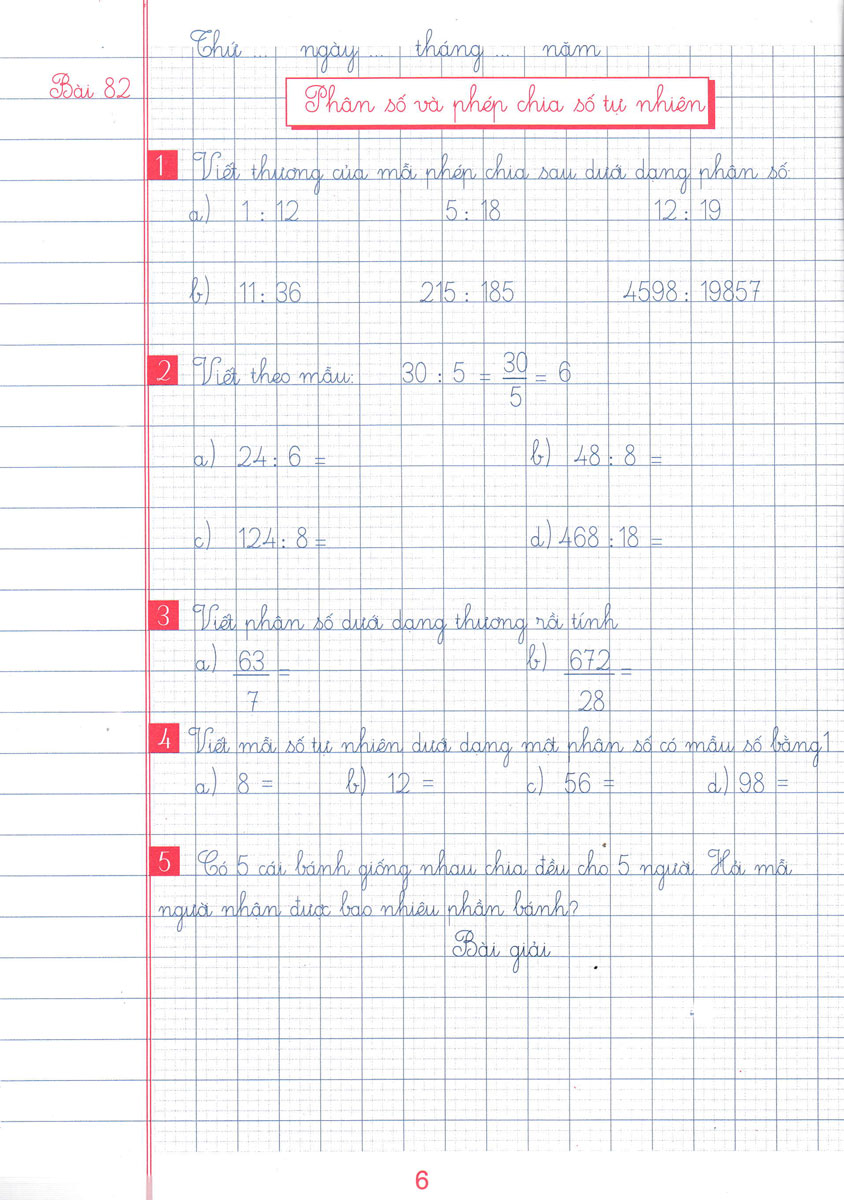 Thứ ... ngày ... tháng ... năm
Bài 82
Phân số và phép chia số tự nhiên
1 Viết thương của mỗi phép chia sau dưới dạng phân số:
a) 1 : 12 5 : 18 12 : 19
b) 11 : 36 215 : 185 4598 : 19857
2 Viết theo mẫu: 30 : 5 = 30/5 = 6
a) 24 : 6 = b) 48 : 8 =
c) 124 : 8 = d) 468 : 18 =
3 Viết phân số dưới dạng thương rồi tính
a) 63/7 = b) 672/28 =
4 Viết mỗi số tự nhiên dưới dạng một phân số có mẫu số bằng 1
a) 8 = b) 12 = c) 56 = d) 98 =
5 Có 5 cái bánh giống nhau chia đều cho 5 người. Hỏi mỗi
người nhận được bao nhiêu phần bánh?
Bài giải
6